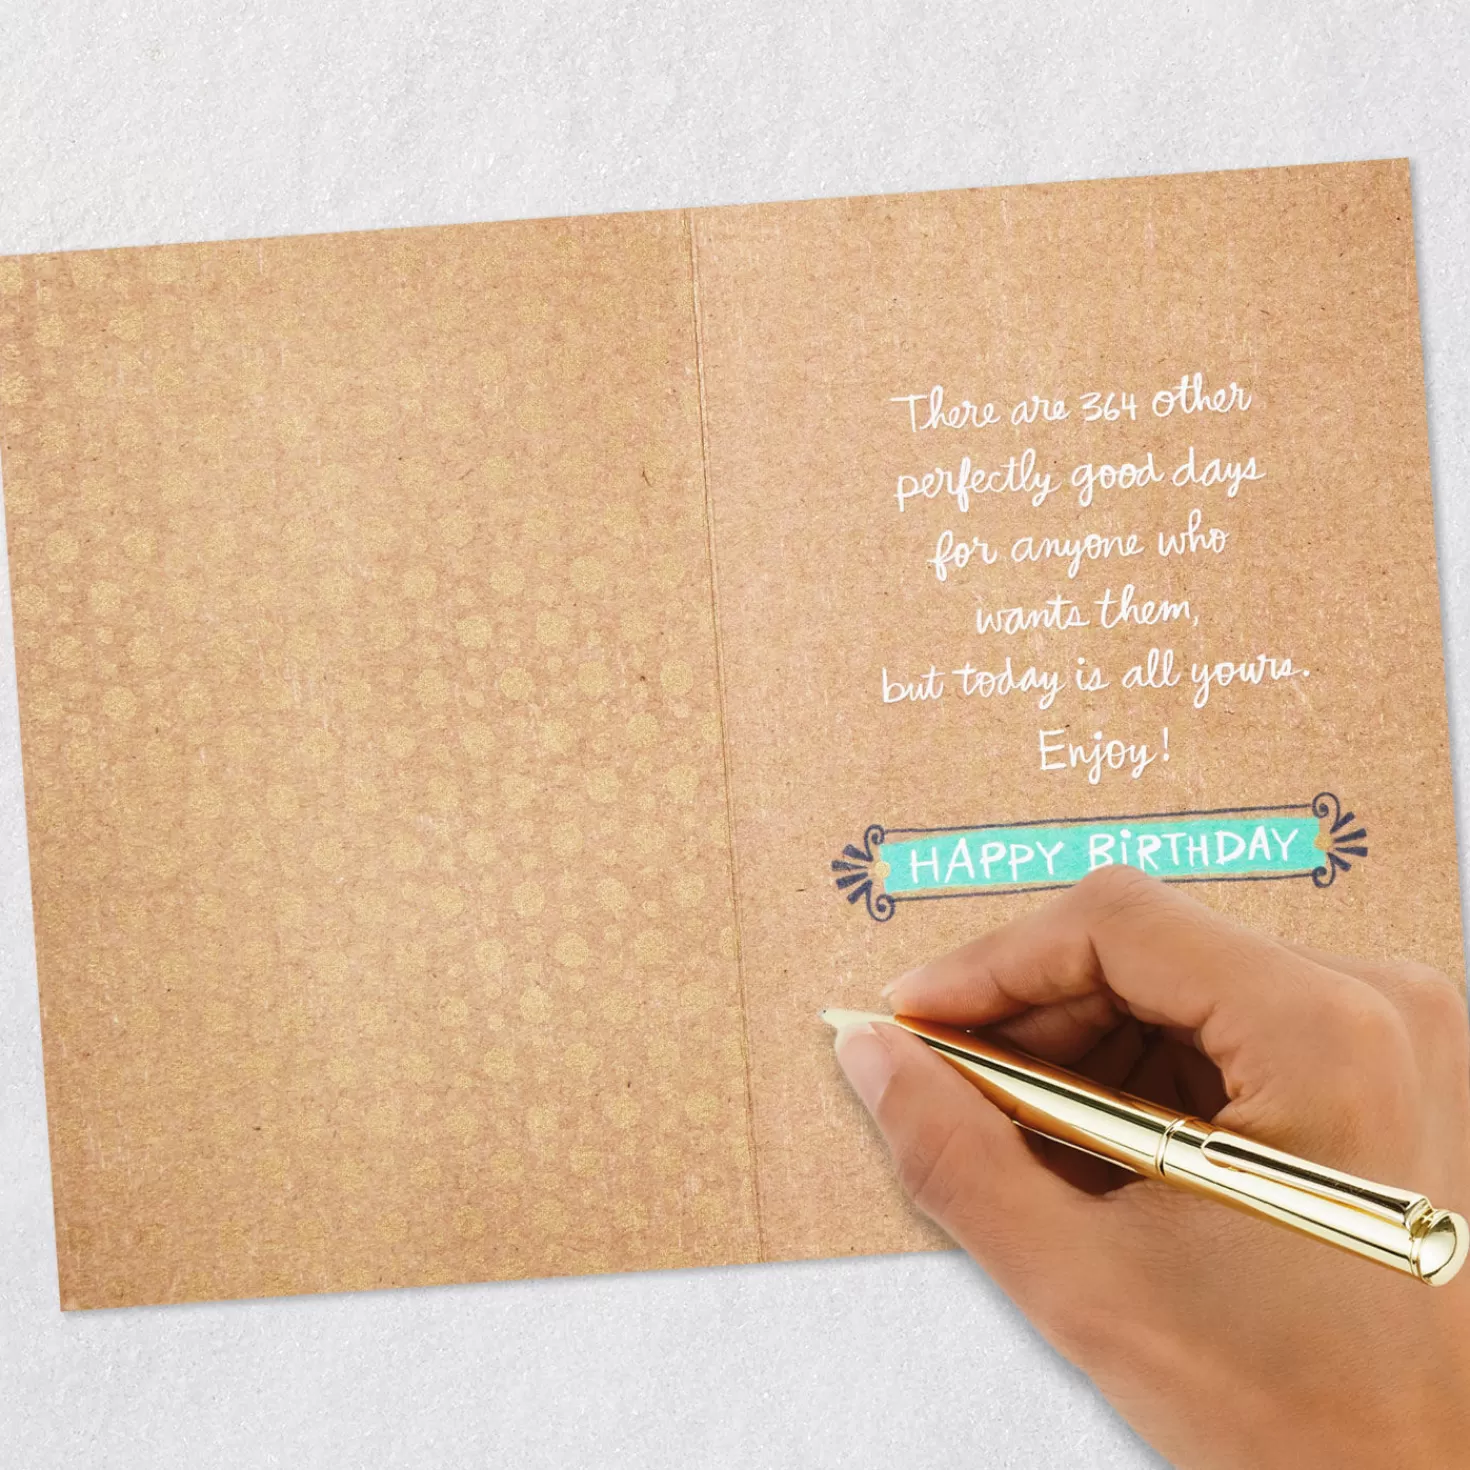 There are 364 other
perfectly good days
for anyone who
wants them,
but today is all yours.
Enjoy!
HAPPY BiRTHDAY